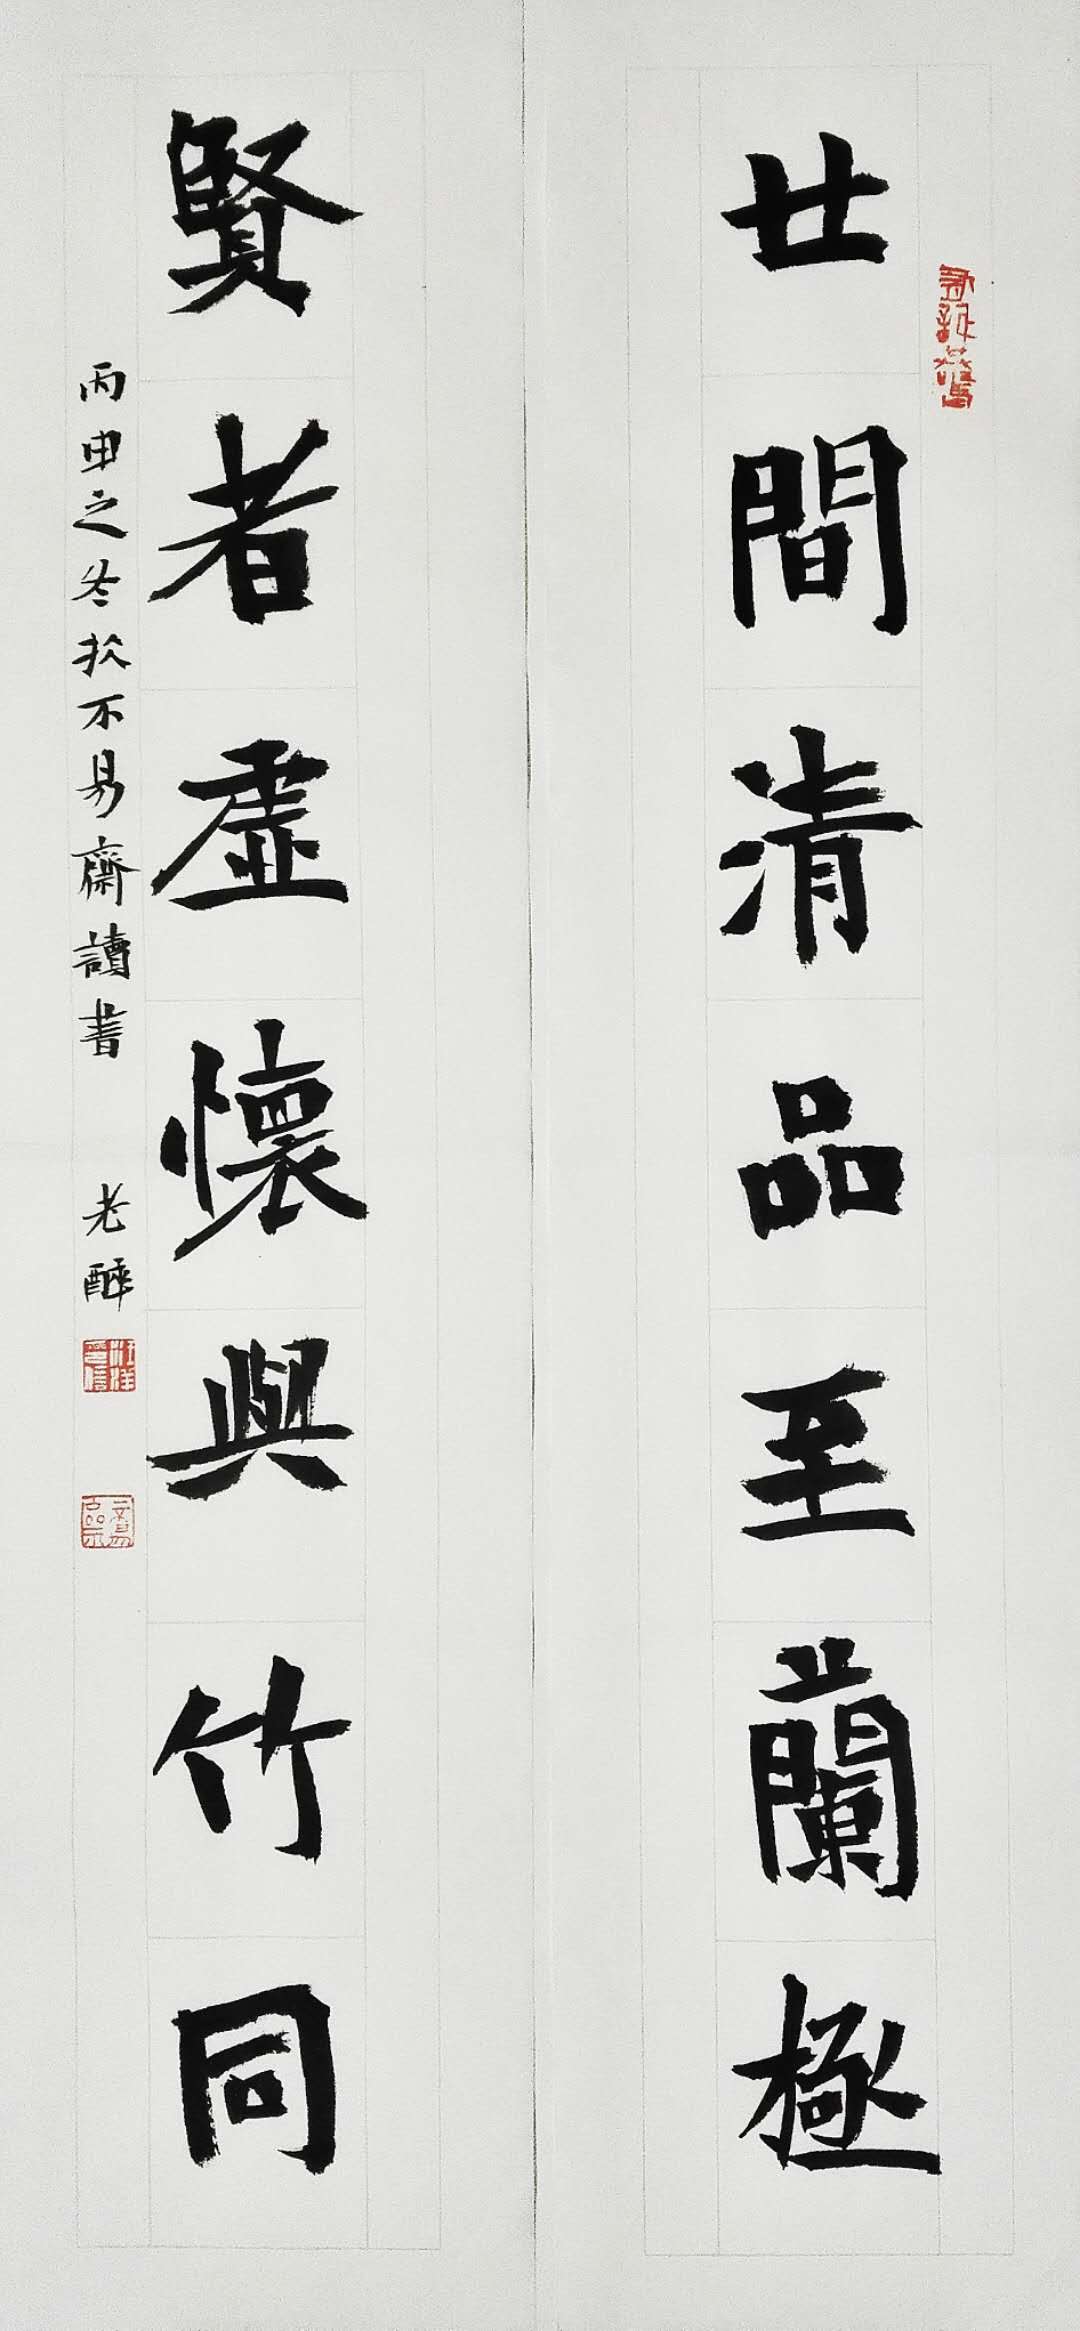 世間清品至蘭極
賢者虛懷與竹同
丙申之冬於不易齋讀書 老醉